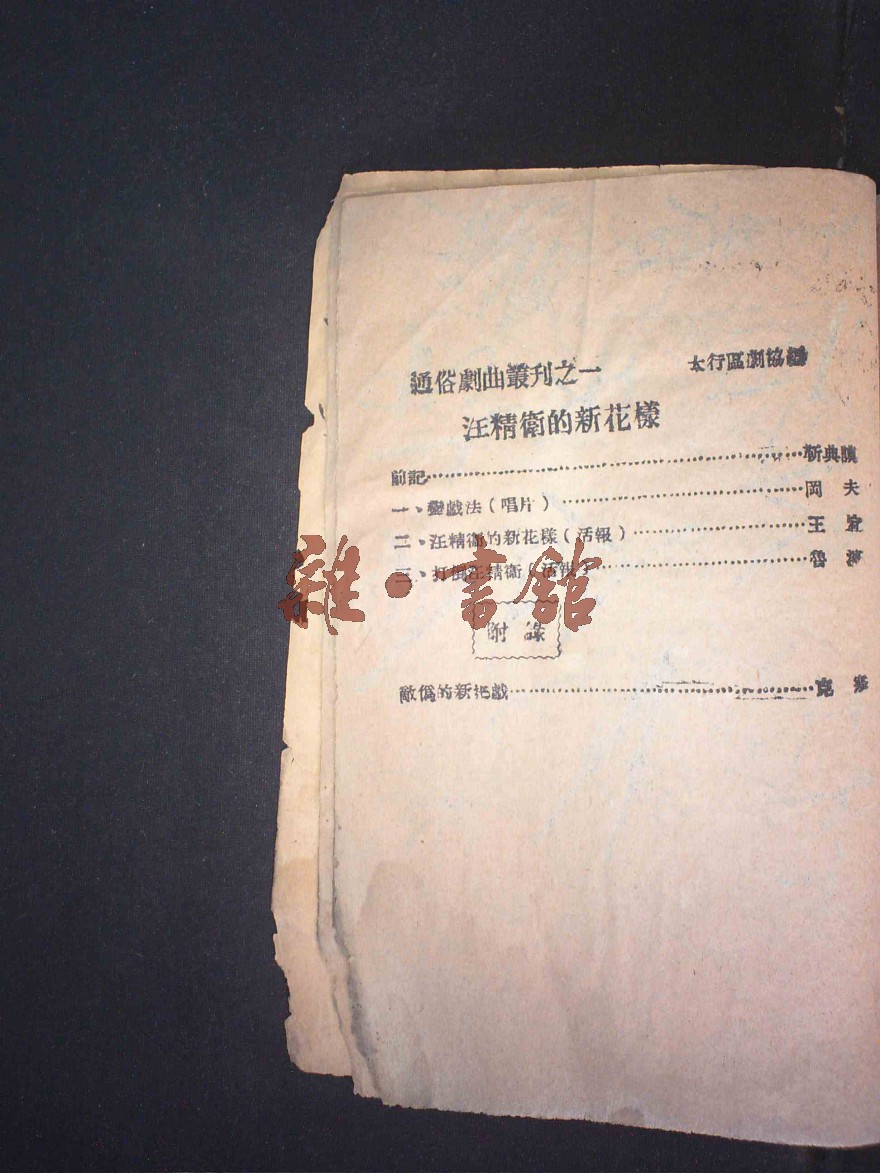 通俗劇曲叢刊之一 太行區劇協編
汪精衛的新花樣
前記……靳典謨
一、變戲法（唱片）……岡夫
二、汪精衛的新花樣（活報）……王宜
三、打倒汪精衛（活報）……魯
雜·書舘
附錄
敵僞的新把戲……克